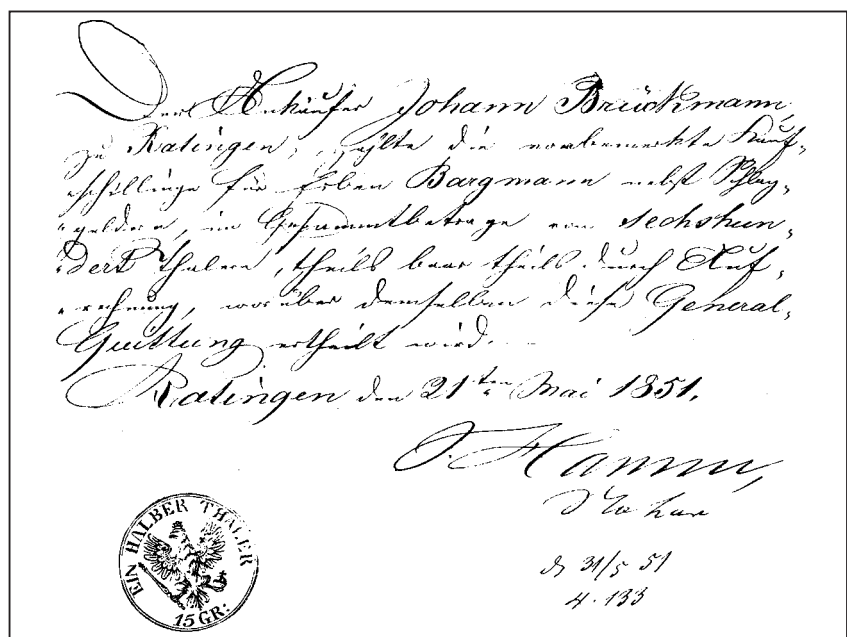 Der Ankäufer Johann Brückmann,
zu Ratingen, zahlte die vorbemerkte Kauf-
schillinge für Erben Bargmann nebst Schlag-
geldern, im Gesammtbetrage von Sechshun-
dert Thalern, theils baar theils durch Auf-
rechnung, worüber demselben diese General-
Quittung ertheilt wird.
Ratingen den 21ten Mai 1851.
Notar
31/5 51
4.133
EIN HALBER THALER
15 GR: